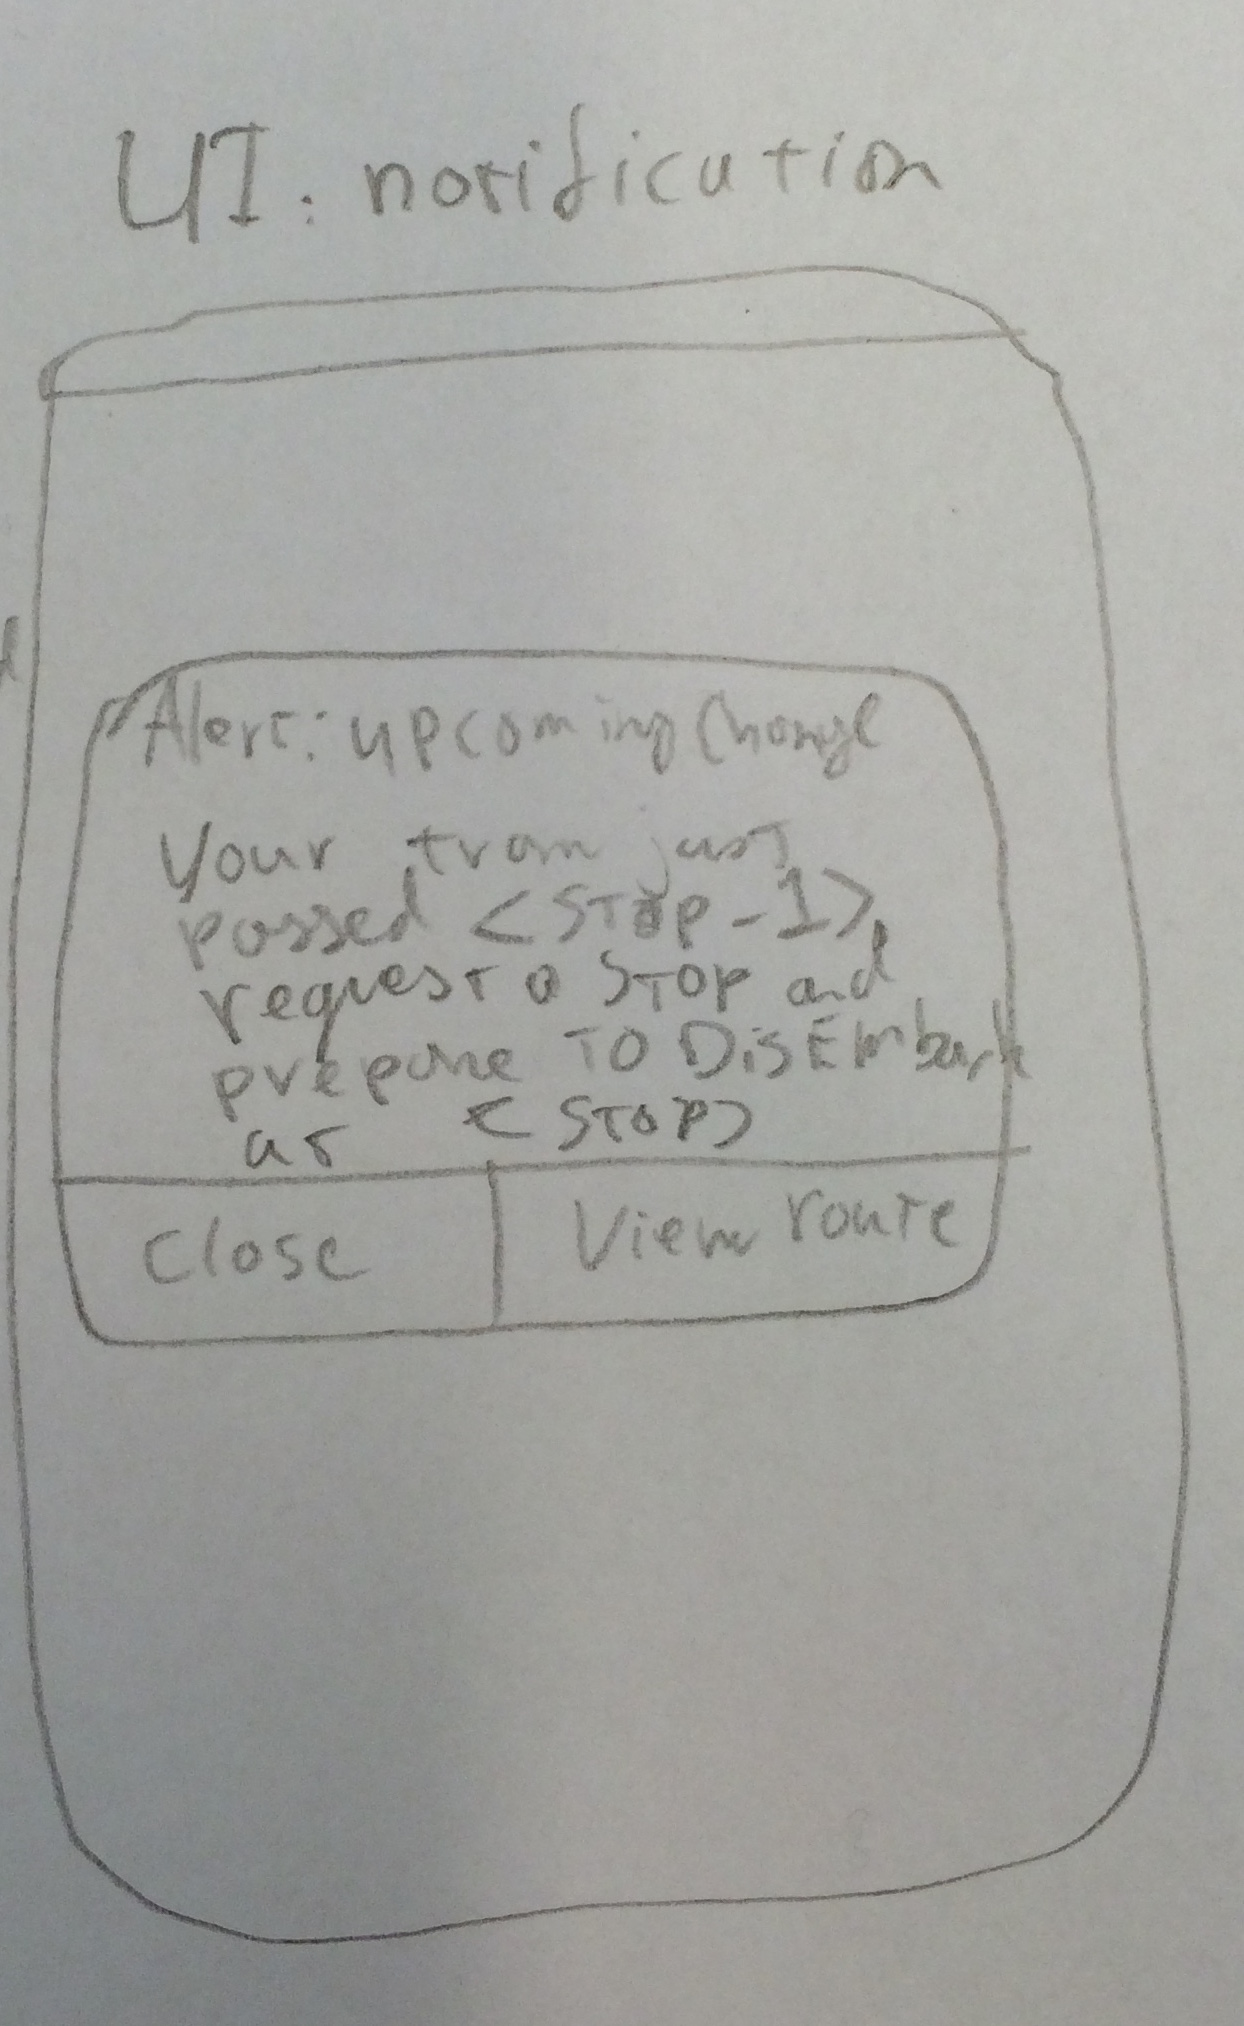 UI: notification
Alert: upcoming Change
Your tram just
passed <STOP-1>,
request a STOP and
prepare TO DisEmbark
at <STOP>
Close
View route